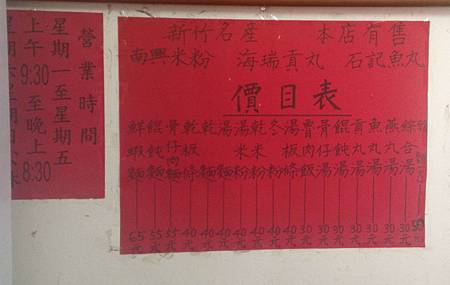 新竹名產 本店有售
南興米粉 海瑞貢丸 石記魚丸
價目表
綜合湯 30元
燕丸湯 30元
魚丸湯 30元
貢丸湯 30元
餛飩湯 30元
骨仔湯 30元
魯肉飯 30元
湯板條 40元
冬粉 40元
乾米粉 40元
湯米粉 40元
湯麵 40元
乾麵 40元
乾板條 40元
骨仔肉麵 55元
餛飩麵 55元
鮮蝦麵 65元
營業時間
星期一至星期五
上午9:30至晚上8:30